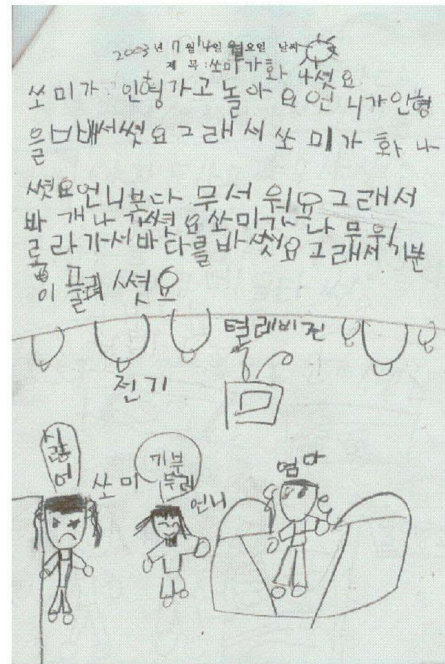 2003년 7월 14일 월요일 날씨
제목:쏘미가 화 나셧요
쏘미가 인형가고 놀아요 언니가 인형
을 빼서썻요 그래서 쏘미가 화 나
셧요 언니보다 무서워요 그래서
바개나 쏘미가 나무위
로 라가서 바다를 바썻요 그래서 기분
이 플려 셧요
텔레비전
전기
싫어
쏘미
기부
언니
엄마